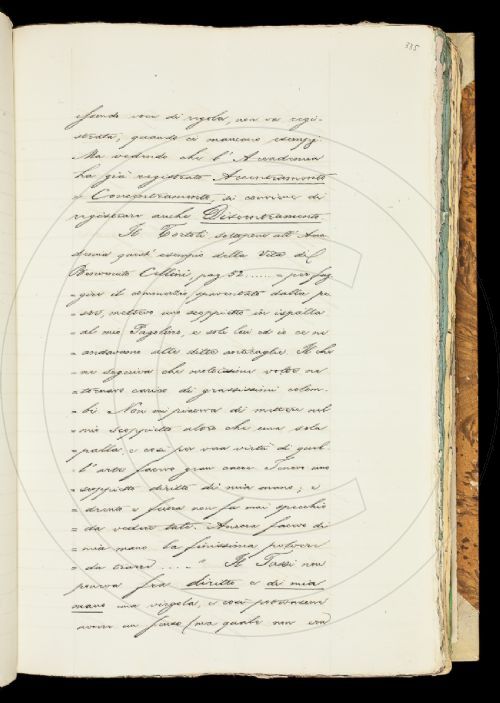 335
essendo voci di regola, non va regi-
strata, quando ci mancano esempj.
Ma vedendo che l'Accademia
ha già registrato Accentramento
e Concentramento, si conviene di
registrare anche Discentramento.
Il Tortoli propone all'Acca
demia quest'esempio della Vita di
Benvenuto Cellini, pag. 52 ....... = per fug
= gire il commercio, spaventato dalla pe
= ste, mettevo uno scoppietto in ispalla
= al mio Pagolino, e solo lui ed io ce ne
= andavamo alle dette anticaglie. Il che
= ne seguiva che moltissime volte ne
= tornavo carico di grassissimi colom
= bi. Non mi piaceva di mettere nel
= mio scoppietto altro che una sola
= palla, e così per vera virtù di quel
= l'arte facevo gran cacce. Tenevo uno
= scoppietto diritto di mia mano; e
= drento e fuora non fu mai specchio
= da vedere tale. Ancora facevo di
= mia mano la finissima polvere
= da trarre ....." Il Tassi non
poneva fra diritto e di mia
mano una virgola, e così potevasi
avere un senso (ma quale non era